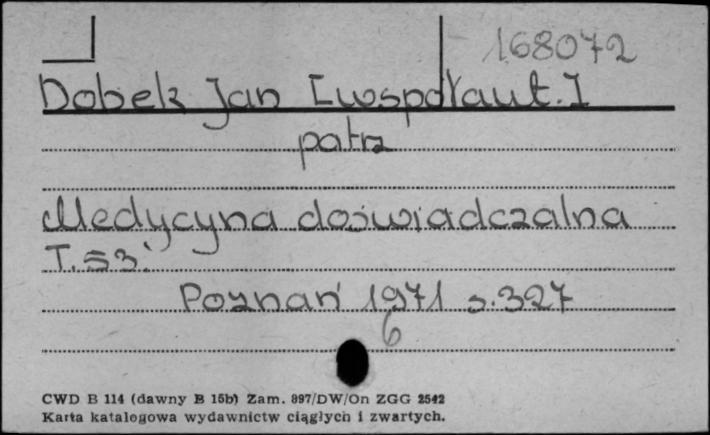 168072
Dobek Jan [współaut.]
patrz
Medycyna doświadczalna
T. 53.
Poznań 1971 s. 327
6
CWD B 114 (dawny B 15b) Zam. 897/DW/On ZGG 2542
Karta katalogowa wydawnictw ciągłych i zwartych.